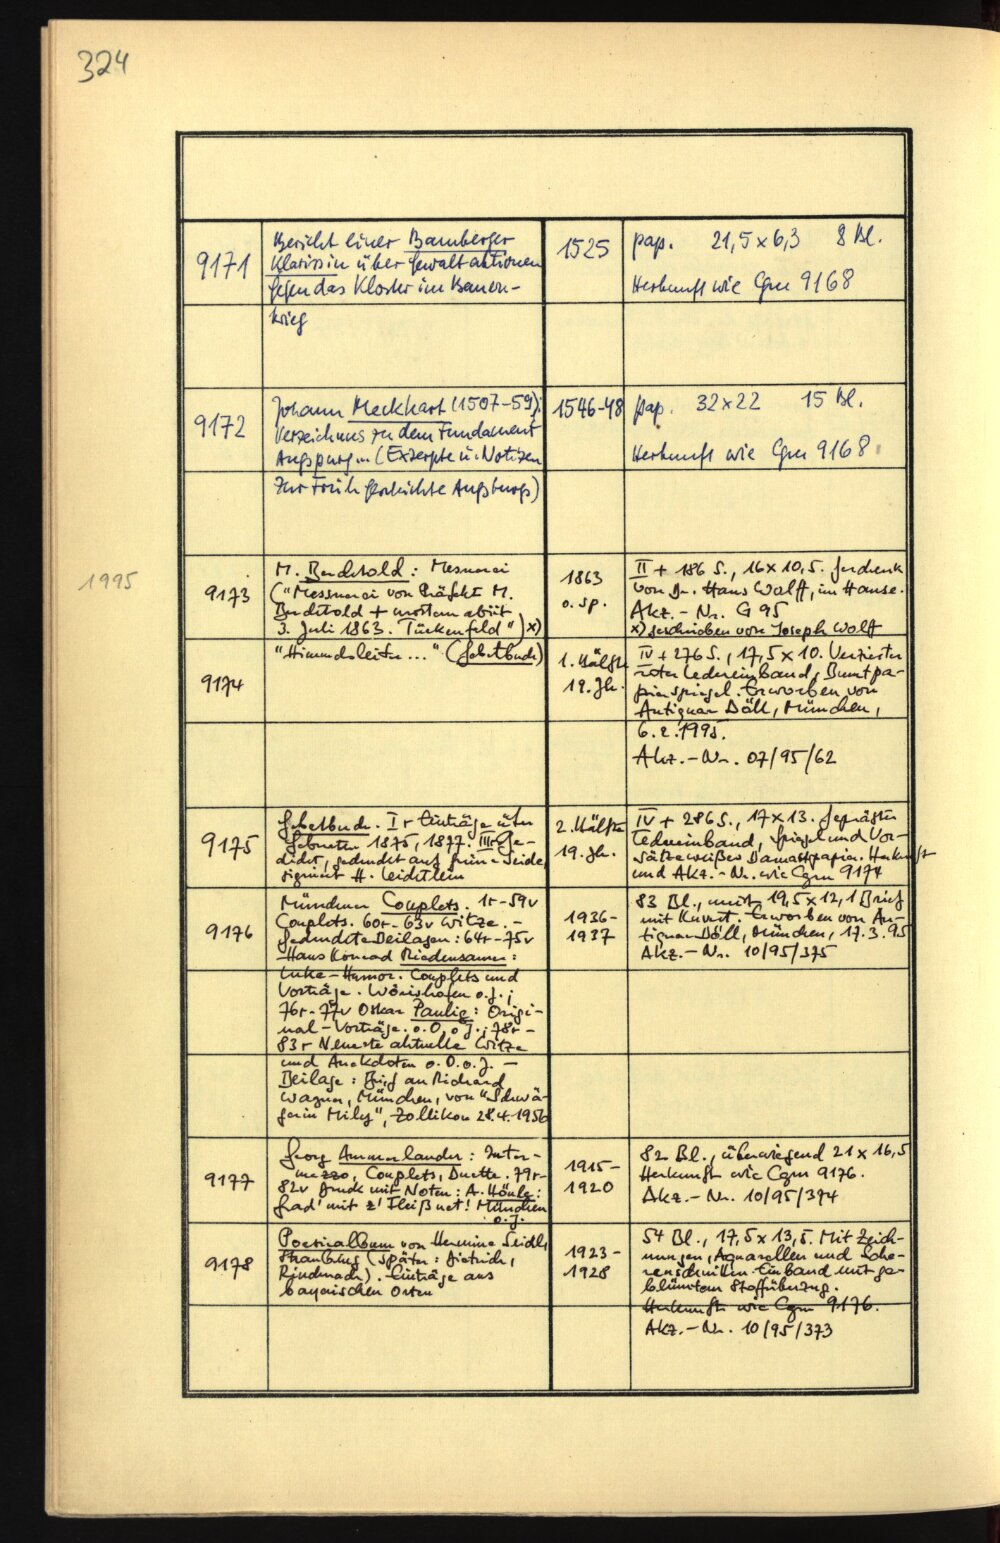 324
9171
Bericht einer Bamberger
Klarissin über Gewaltaktionen
gegen das Kloster im Bauern-
krieg
1525
Pap. 21,5 x 6,3 8 Bl.
Herkunft wie Cgm 9168
9172
Johann Meckhart (1507-59):
Verzeichnus zu dem Fundament
Augspurg (Exzerpte u. Notizen
zur Frühgeschichte Augsburgs)
1546-48
Pap. 32 x 22 15 Bl.
Herkunft wie Cgm 9168
1995
9173
M. Berchtold: Mesnerei
("Messnerei von Präfekt M.
Berchtold + mortem abiit
3. Juli 1863. Türkenfeld") x)
1863
o. sp.
II + 186 S., 16 x 10,5. Geschenk
von Dr. Hans Wolff, im Hause.
Akz.-Nr. G 95
x) geschrieben von Joseph Wolff
9174
"Himmelsleiter..." (Gebetbuch)
1. Hälfte
19. Jh.
IV + 276 S., 17,5 x 10. Verzierter
roter Ledereinband, Buntpa-
pierspiegel. Erworben von
Antiquar Döll, München,
6.2.1995.
Akz.-Nr. 07/95/62
9175
Gebetbuch. Ir Einträge über
Geburten 1875, 1877. IIIr Ge-
dicht, gedruckt auf grüne Seide,
signiert H. Leichtlein
2. Hälfte
19. Jh.
IV + 286 S., 17 x 13. Geprägter
Ledereinband, Spiegel und Vor-
sätze weißes Damastpapier. Herkunft
und Akz.-Nr. wie Cgm 9174
9176
Münchner Couplets. 1r-59v
Couplets. 60r-63v Witze. -
Gedruckte Beilagen: 64r-75v
Hans Konrad Riedensauer:
Ulke-Humor. Couplets und
Vorträge. Wörishofen o. J.;
76r-77v Oskar Paulig: Origi-
nal-Vorträge. o. O. o J.; 78r-
83r Neueste aktuelle Witze
und Anekdoten o. O. o. J. -
Beilage: Brief an Richard
Wagner, München, von "Schwä-
gerin Mily", Zollikon 28.4.1956
1936-
1937
83 Bl., meist 19,5 x 12, 1 Brief
mit Kuvert. Erworben von An-
tiquar Döll, München, 17.3.95
Akz.-Nr. 10/95/375
9177
Georg Ammerlander: Inter-
mezzo, Couplets, Duette. 79r-
82v Druck mit Noten: A. Hönle:
Grad' mit z' Fleiß net! München
o. J.
1915-
1920
82 Bl., überwiegend 21 x 16,5
Herkunft wie Cgm 9176.
Akz.-Nr. 10/95/374
9178
Poesiealbum von Hermine Seidl,
Straubing (später: Dietrich,
Rindmach). Einträge aus
bayerischen Orten
1923-
1928
54 Bl., 17,5 x 13,5. Mit Zeich-
nungen, Aquarellen und Sche-
renschnitten. Einband mit ge-
blümtem Stoffüberzug.
Herkunft wie Cgm 9176.
Akz.-Nr. 10/95/373